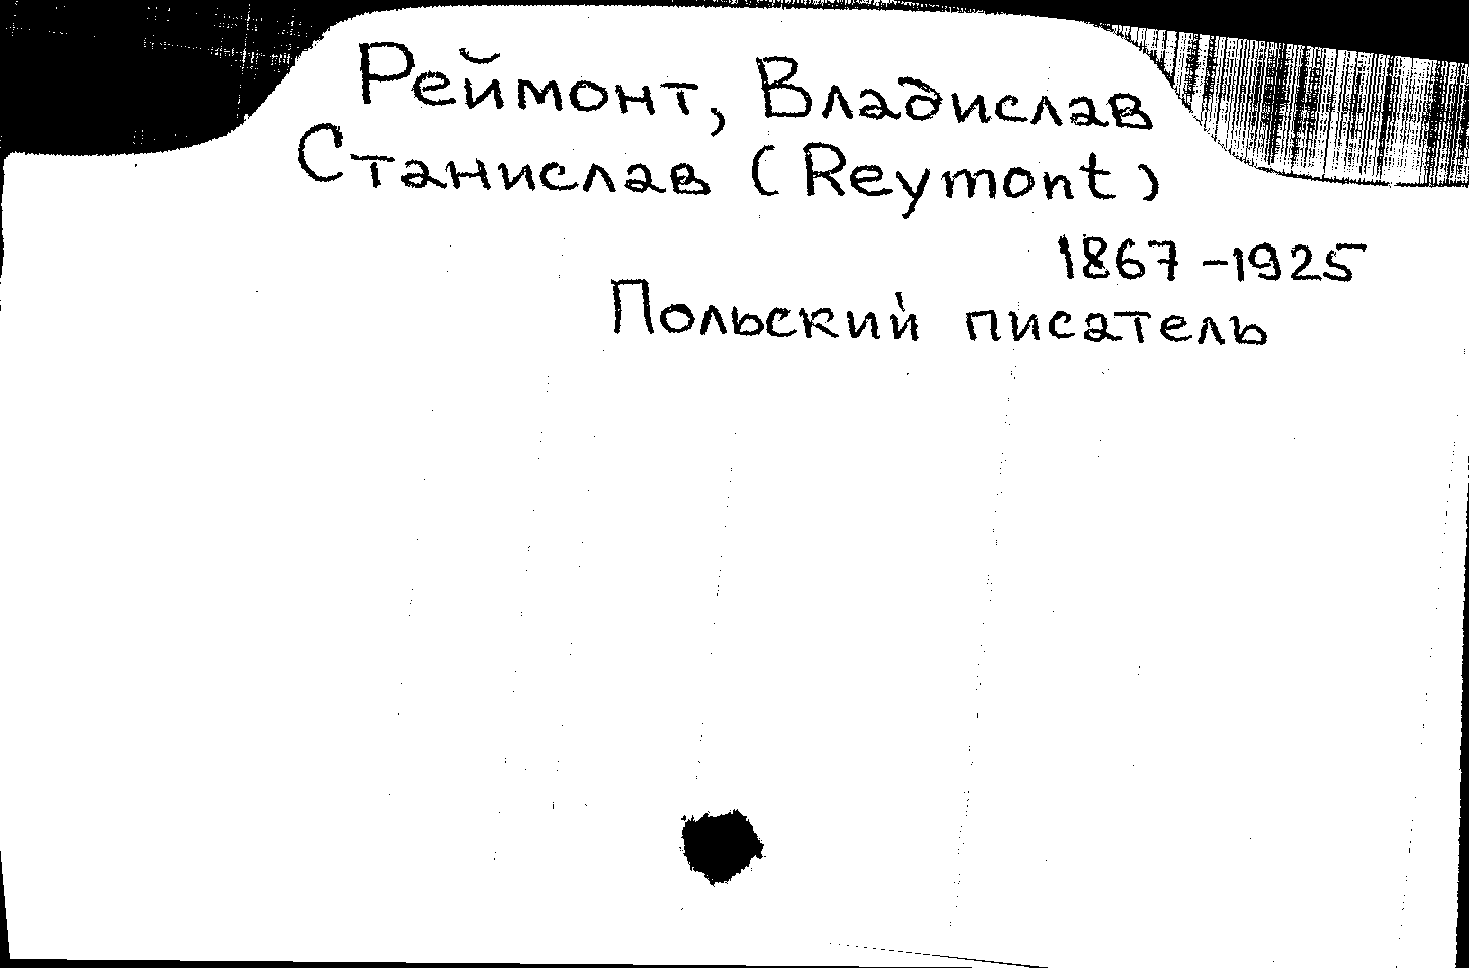 Реймонт, Владислав
Станислав (Reymont)
1867-1925
Польский писатель